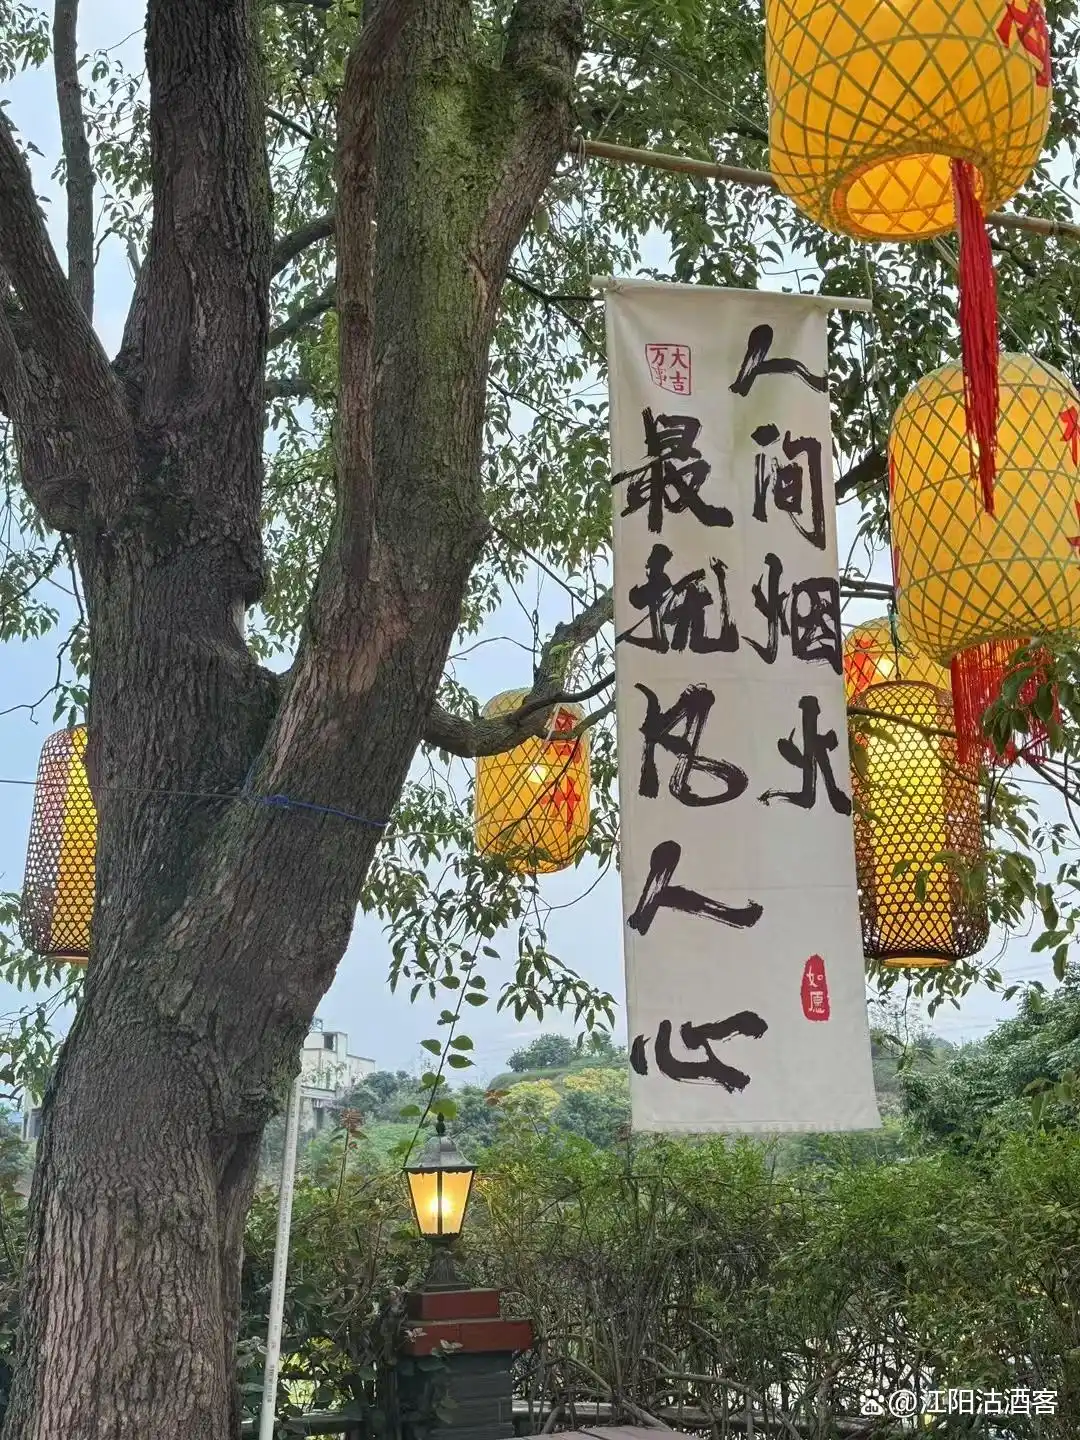 人间烟火
最抚凡人心
万事大吉
如愿
du @江阳沽酒客